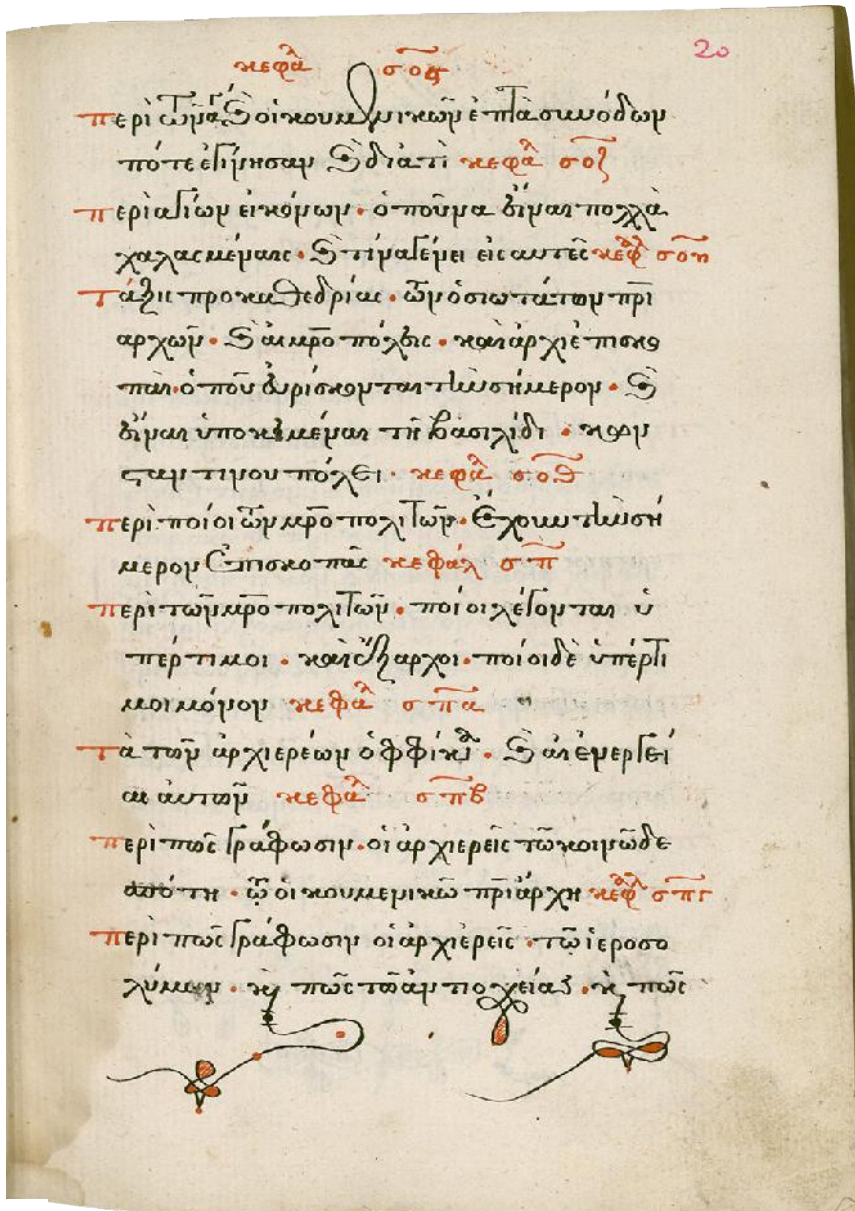 20
κεφαλ σος
περὶ τῶν ἁγίων καὶ οἰκουμενικῶν ἑπτὰ συνόδων
πότε ἐγίνησαν καὶ διατὶ κεφαλ σοζ
περὶ ἁγίων εἰκόνων· ὁποῦ νὰ εἶναι πολλὰ
χαλασμέναις· καὶ τί νὰ γένει εἰς αυτὲς κεφ σοη
τάξις προκαθεδρίας· τῶν ὁσιωτάτων πρι
αρχῶν· καὶ αἱ μροπόλεις· καὶ ἀρχιεπισκο
παὶ· ὁποῦ εὑρίσκονται τὴν σήμερον· καὶ
εἶναι ὑποκείμεναι τῆ βασιλίδι· κων
σταντίνου πόλει· κεφαλ σοθ
περὶ ποίοι τῶν μροπολιτῶν· ἔχουν τὴν σή
μερον ἐπισκοπὰς κεφάλ σπ
περὶ τῶν μροπολιτῶν· ποίοι λέγονται ὑ
πέρτιμοι· καὶ ἔξαρχοι· ποίοι δὲ ὑπέρτι
μοι μόνον κεφαλ σπα
τὰ τῶν ἀρχιερέων ὀφφίκια· καὶ αἱ ἐνεργεί
αι αὐτῶν κεφαλ σπβ
περὶ πῶς γράφωσιν· οἱ ἀρχιερεῖς τῶ κοινῶ δε
σπότη· τῶ οἰκουμενικῶ πριάρχη κεφ σπγ
περὶ πῶς γράφωσιν οἱ ἀρχιερεῖς· τῶ ἱεροσο
λύμων· κ πῶς τῶ ἀντιοχείας· κ πῶς